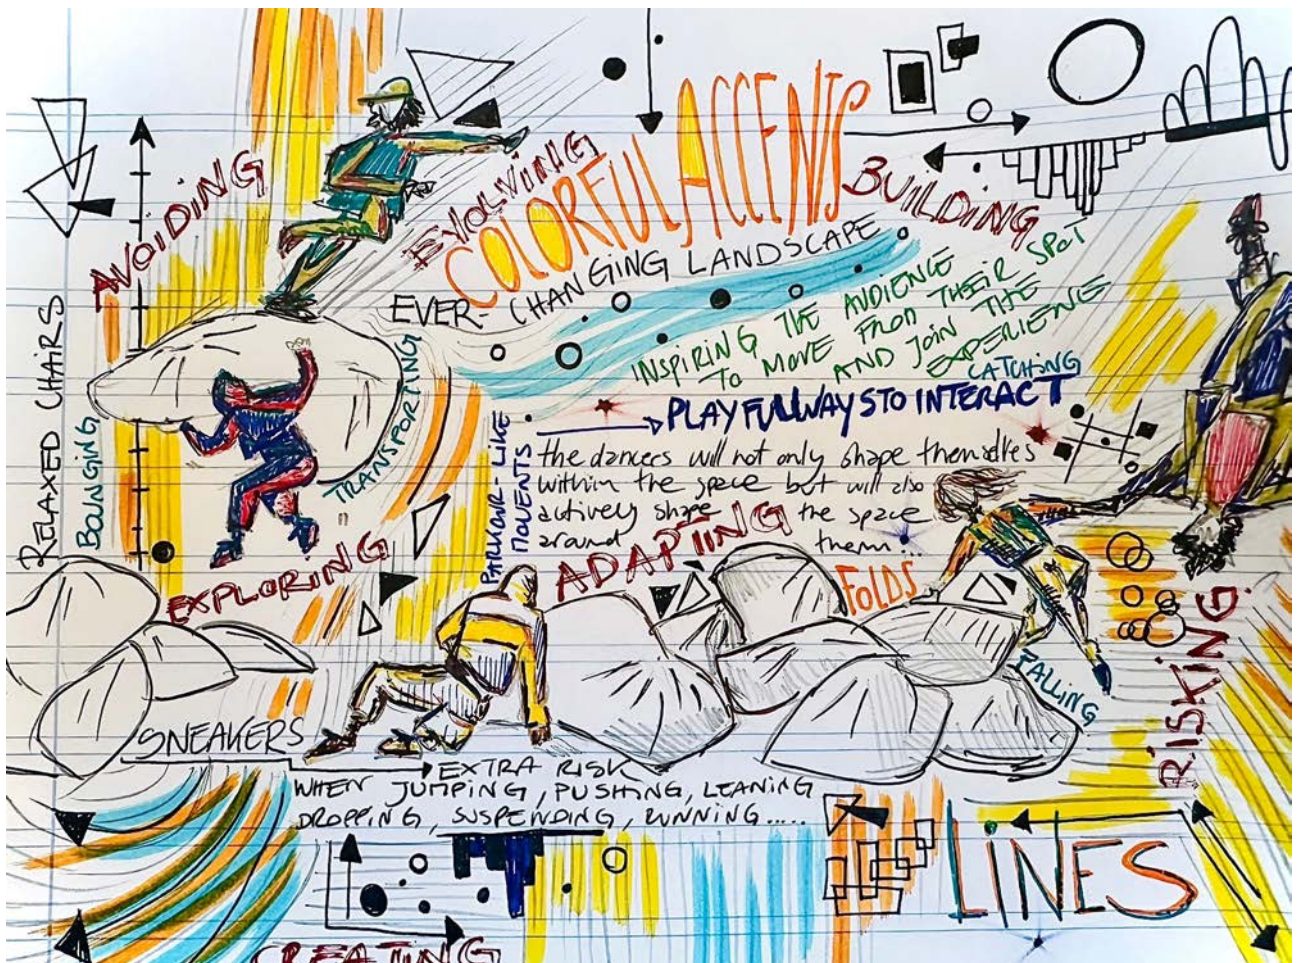 COLORFUL ACCENTS
EVOLVING
AVOIDING
BUILDING
EVER-CHANGING LANDSCAPE
INSPIRING THE AUDIENCE
TO MOVE FROM THEIR SPOT
AND JOIN THE
EXPERIENCE
CATCHING
RELAXED CHAIRS
BOUNGING
TRANSPORTING
PLAYFULLWAYS TO INTERACT
PARKOUR-LIKE
MOVENTS
the dancers will not only shape themselves
within the space but will also
actively shape the space
around them...
ADAPTING
EXPLORING
FOLDS
FALLING
RISKING
SNEAKERS
EXTRA RISK
WHEN JUMPING, PUSHING, LEANING
DROPPING, SUSPENDING, RUNNING.....
LINES
CREATING